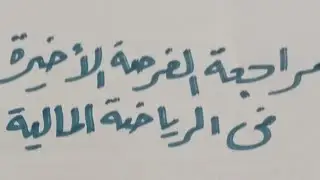 مراجعة الفرصة الأخيرة
فى الرياضة المالية